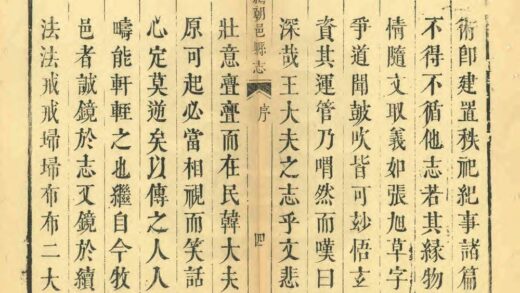 術即建置秩祀紀事諸篇
不得不循他志若其緣物
情隨文取義如張旭草字
爭道聞皷吹皆可妙悟玄
資其運管乃喟然而嘆曰
深哉王大夫之志乎文悲
朝邑縣志
序
四
壯意亹亹而在民韓大夫
原可起必當相視而笑話
心定莫逆矣以傳之人人
疇能軒輊之也繼自今牧
邑者誠鏡於志又鏡於續
法法戒戒埽埽布布二大